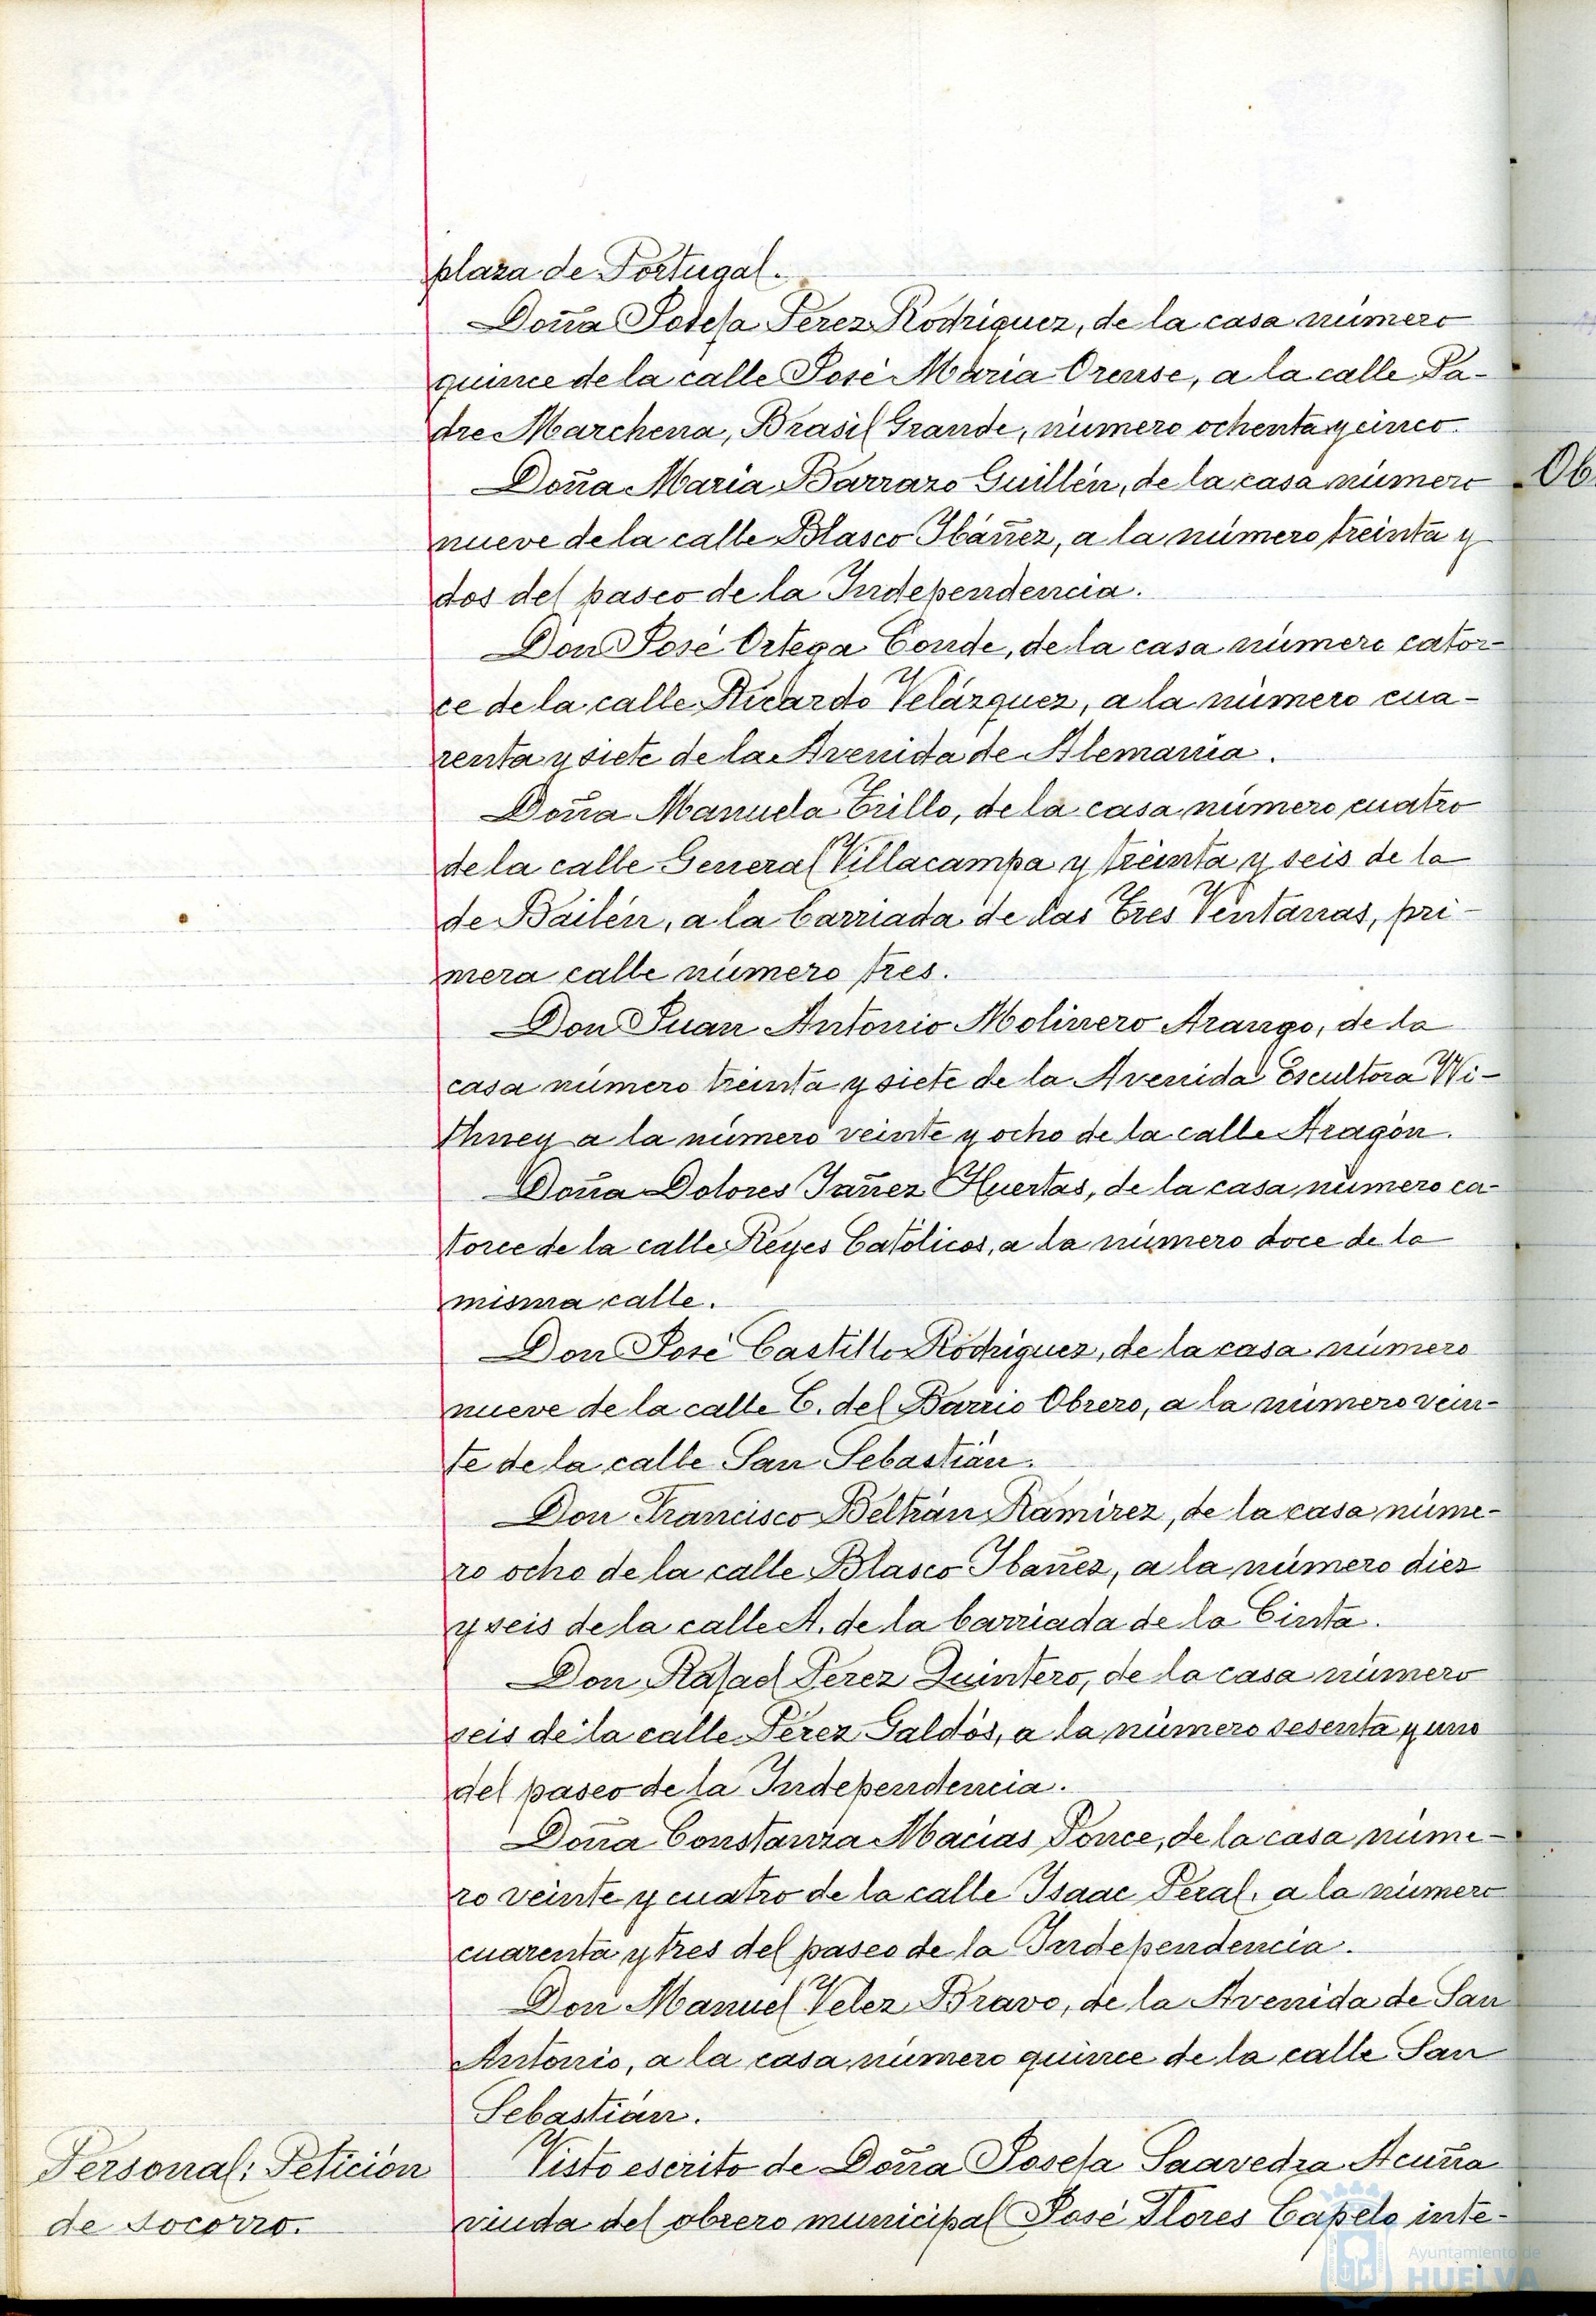 plaza de Portugal.
Doña Josefa Perez Rodriguez, de la casa número
quince de la calle José Maria Orense, a la calle Pa-
dre Marchena, Brasil Grande, número ochenta y cinco.
Doña Maria Barrazo Guillén, de la casa número
Ob
nueve de la calle Blasco Ibáñez, a la número treinta y
dos del paseo de la Independencia.
Don José Ortega Conde, de la casa número cator-
ce de la calle Ricardo Velázquez, a la número cua-
renta y siete de la Avenida de Alemania.
Doña Manuela Trillo, de la casa número cuatro
de la calle General Villacampa y treinta y seis de la
de Bailén, a la barriada de las Tres Ventanas, pri-
mera calle número tres.
Don Juan Antonio Molinero Arango, de la
casa número treinta y siete de la Avenida Escultora Wi-
thney a la número veinte y ocho de la calle Aragón.
Doña Dolores Jañez Huertas, de la casa número ca-
torce de la calle Reyes Católicos, a la número doce de la
misma calle.
Don José Castillo Rodriguez, de la casa número
nueve de la calle C. del Barrio Obrero, a la número vein-
te de la calle San Sebastián.
Don Francisco Beltrán Ramirez, de la casa núme-
ro ocho de la calle Blasco Ibañez, a la número diez
y seis de la calle A. de la barriada de la Cinta.
Don Rafael Perez Quintero, de la casa número
seis de la calle Pérez Galdós, a la número sesenta y uno
del paseo de la Independencia.
Doña Constanza Macias Ponce, de la casa núme-
ro veinte y cuatro de la calle Isaac Peral, a la número
cuarenta y tres del paseo de la Independencia.
Don Manuel Velez Bravo, de la Avenida de San
Antonio, a la casa número quince de la calle San
Sebastián.
Personal: Petición
de socorro.
Visto escrito de Doña Josefa Saavedra Acuña
viuda del obrero municipal José Flores Capelo inte-
Ayuntamiento de
HUELVA